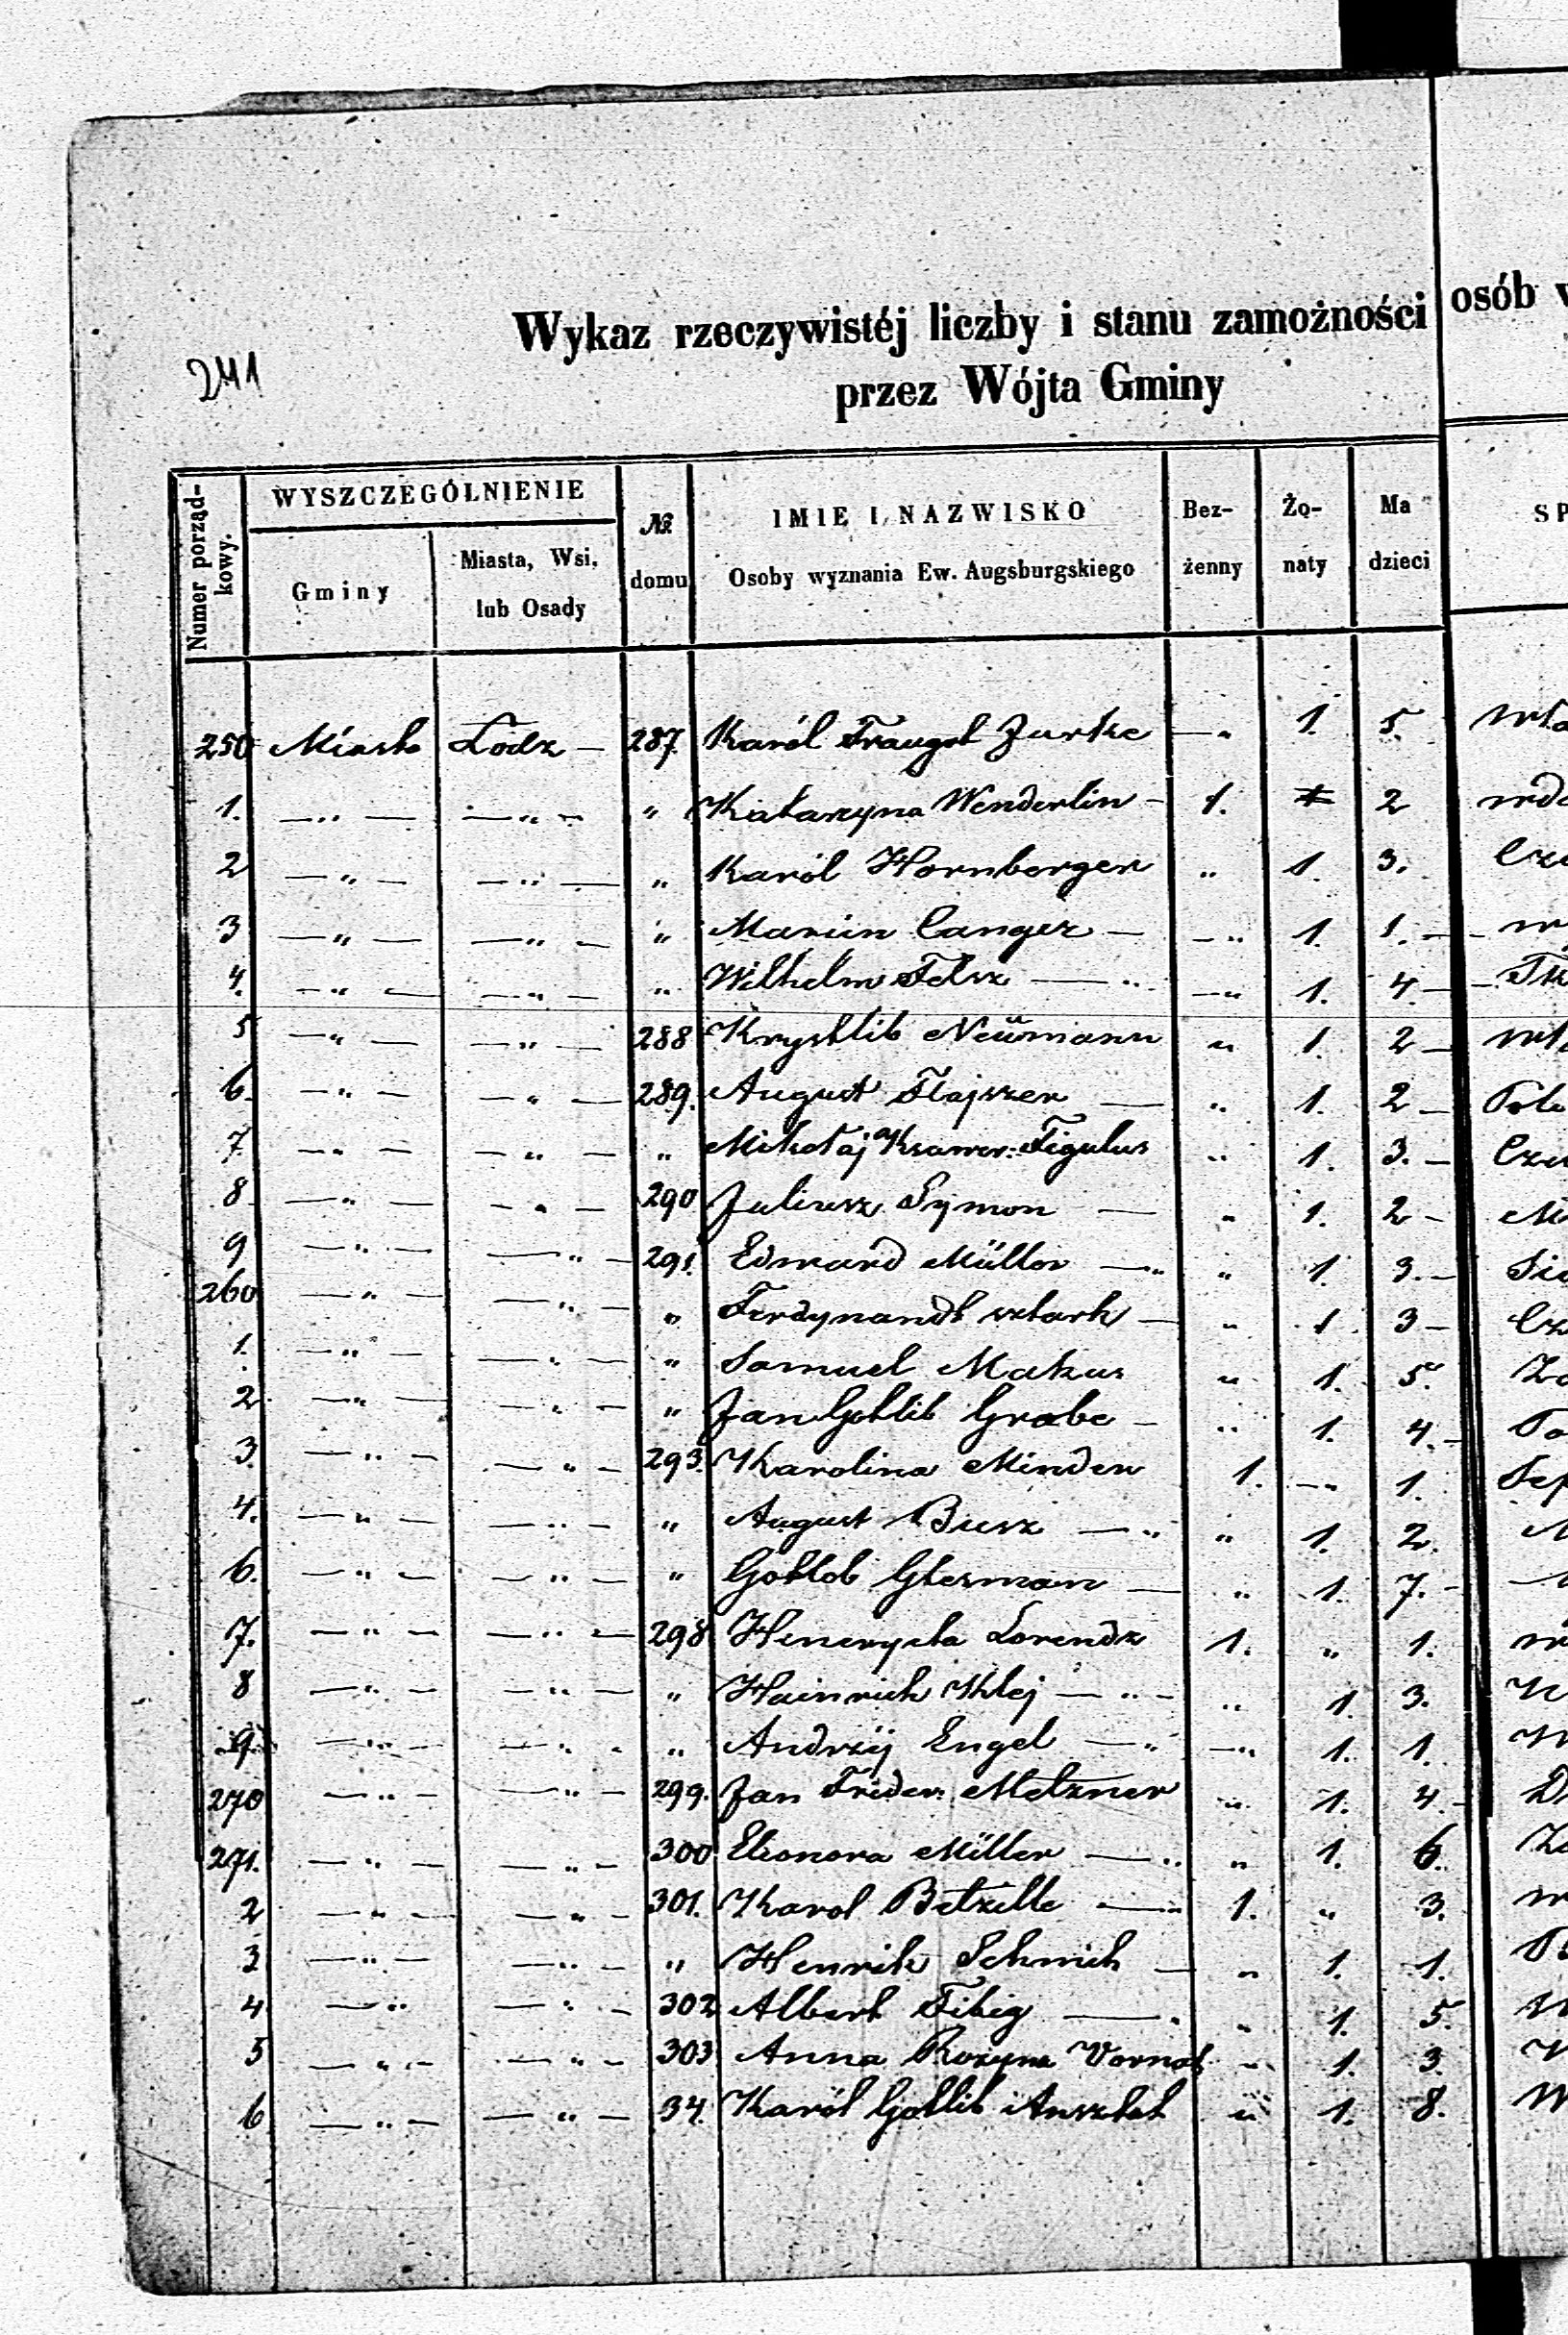 241
Wykaz rzeczywistéj liczby i stanu zamożności osób
przez Wójta Gminy
Numer porządkowy.
WYSZCZEGÓLNIENIE
Gminy
Miasta, Wsi, lub Osady
№ domu
IMIE I NAZWISKO
Osoby wyznania Ew. Augsburgskiego
Bezżenny
Żonaty
Ma dzieci
SP
250 Miasto Lódz — 287. Karól Traugot Jurke — „ 1. 5.
1. — „ — — „ — „ Katarzyna Wenderlin — 1. 2
2 — „ — — „ — „ Karól Hornberger „ 1. 3.
3 — „ — — „ — „ Marcin Canger — — „ 1. 1. —
4. — „ — — „ — „ Wilhelm Felsz — „ — „ 1. 4. —
5 — „ — — „ — 288 Krysttib Neümann „ 1. 2 —
6. — „ — — „ — 289. August Flajszer — „ 1. 2 —
7. — „ — — „ — „ Mikołaj Ksawer: Figulus „ 1. 3. —
8. — „ — — „ — 290 Juliusz Symon — „ 1. 2 —
9 — „ — — „ — 291. Edward Müller — „ „ 1. 3. —
260 — „ — — „ — „ Ferdynandt sztark — „ 1 3 —
1. — „ — — „ — „ Samuel Makus „ 1. 5.
2 — „ — — „ — „ Jan Gottlib Grabe — „ 1. 4. —
3. — „ — — „ — 293. Karolina Minder 1. — „ 1.
4. — „ — — „ — „ August Busz — „ „ 1. 2.
6. — „ — — „ — „ Gottlob Glesman — „ 1. 7. —
7. — „ — — „ — 298 Henryeta Lorendz 1. „ 1.
8 — „ — — „ — „ Hainrich Klej — „ — „ 1. 3.
9. — „ — — „ — „ Andrzij Engel — „ — „ 1. 1.
270 — „ — — „ — 299. Jan Frider: Metzner „ 1. 4. —
271. — „ — — „ — 300 Eleonora Müller — „ „ 1. 6.
2 — „ — — „ — 301. Karol Betzelle — „ 1. „ 3.
3 — „ — — „ — „ Henrik Schmich — „ 1. 1.
4 — „ — „ — 302 Albert Fibig — „ 1. 5.
5 — „ — — „ — 303 Anna Rozyna Vornat „ 1. 3.
6 — „ — — „ — 34. Karól Gottlib Ansztat „ 1. 8.